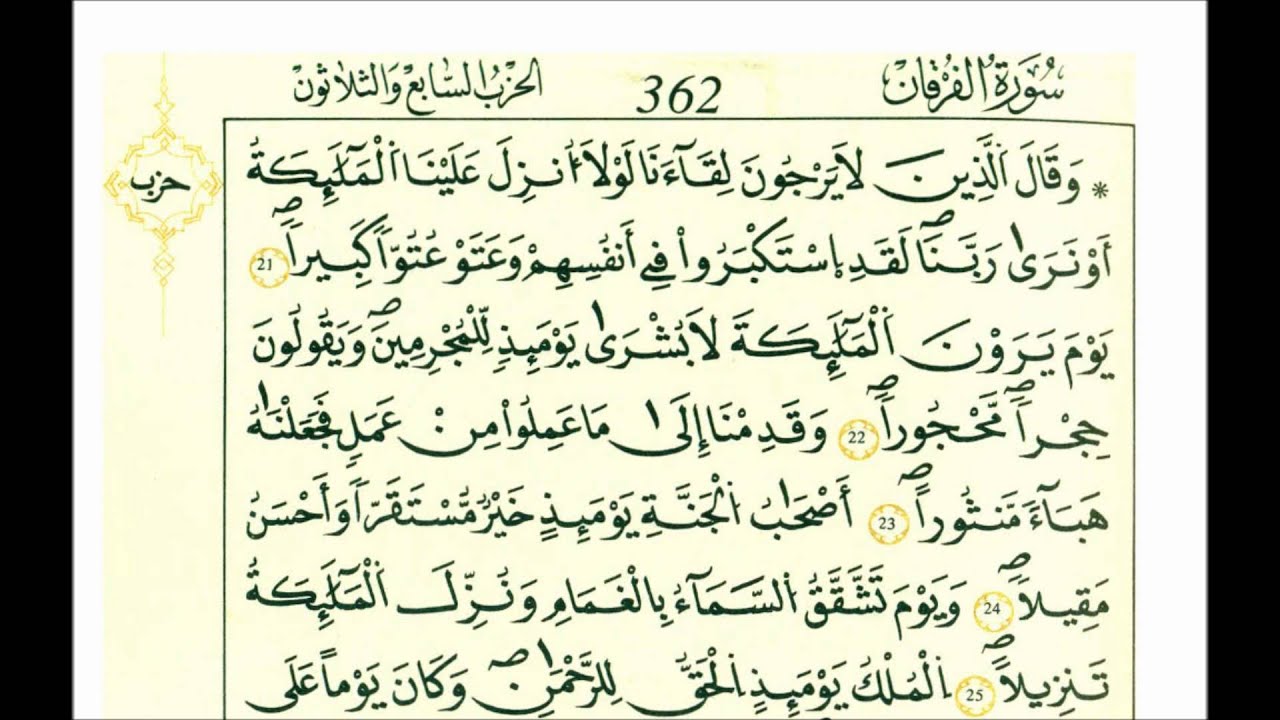 سُورَةُ الفُرْقَان 362 الحِزْبُ السَّابِعُ وَالثَّلَاثُون
حزب
* وَقَالَ اَ۬لذِينَ لَا يَرْجُونَ لِقَآءَنَا لَوْلَآ أُنزِلَ عَلَيْنَا اَ۬لْمَلَٰٓئِكَةُ
أَوْ نَر۪يٰ رَبَّنَاۖ لَقَدِ اِ۪سْتَكْبَرُواْ فِےٓ أَنفُسِهِمْ وَعَتَوْ عُتُوّاٗ كَبِيراٗۖ 21
يَوْمَ يَرَوْنَ اَ۬لْمَلَٰٓئِكَةَ لَا بُشْر۪يٰ يَوْمَئِذٖ لِّلْمُجْرِمِينَۖ وَيَقُولُونَ
حِجْراٗ مَّحْجُوراٗۖ 22 وَقَدِمْنَآ إِلَىٰ مَا عَمِلُواْ مِنْ عَمَلٖ فَجَعَلْنَٰهُ
هَبَآءٗ مَّنثُوراًۖ 23 أَصْحَٰبُ اُ۬لْجَنَّةِ يَوْمَئِذٍ خَيْرٞ مُّسْتَقَرّاٗ وَأَحْسَنُ
مَقِيلاٗۖ 24 وَيَوْمَ تَشَّقَّقُ اُ۬لسَّمَآءُ بِالْغَمَٰمِ وَنُزِّلَ اَ۬لْمَلَٰٓئِكَةُ
تَنزِيلاًۖ 25 اِ۬لْمُلْكُ يَوْمَئِذٍ اِ۬لْحَقُّ لِلرَّحْمَٰنِۖ وَكَانَ يَوْماً عَلَى